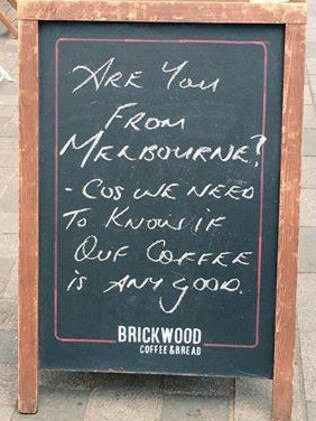 ARE YOU
FROM
MELBOURNE?
- COS WE NEED
TO KNOW IF
OUR COFFEE
IS ANY GOOD.
BRICKWOOD
COFFEE & BREAD